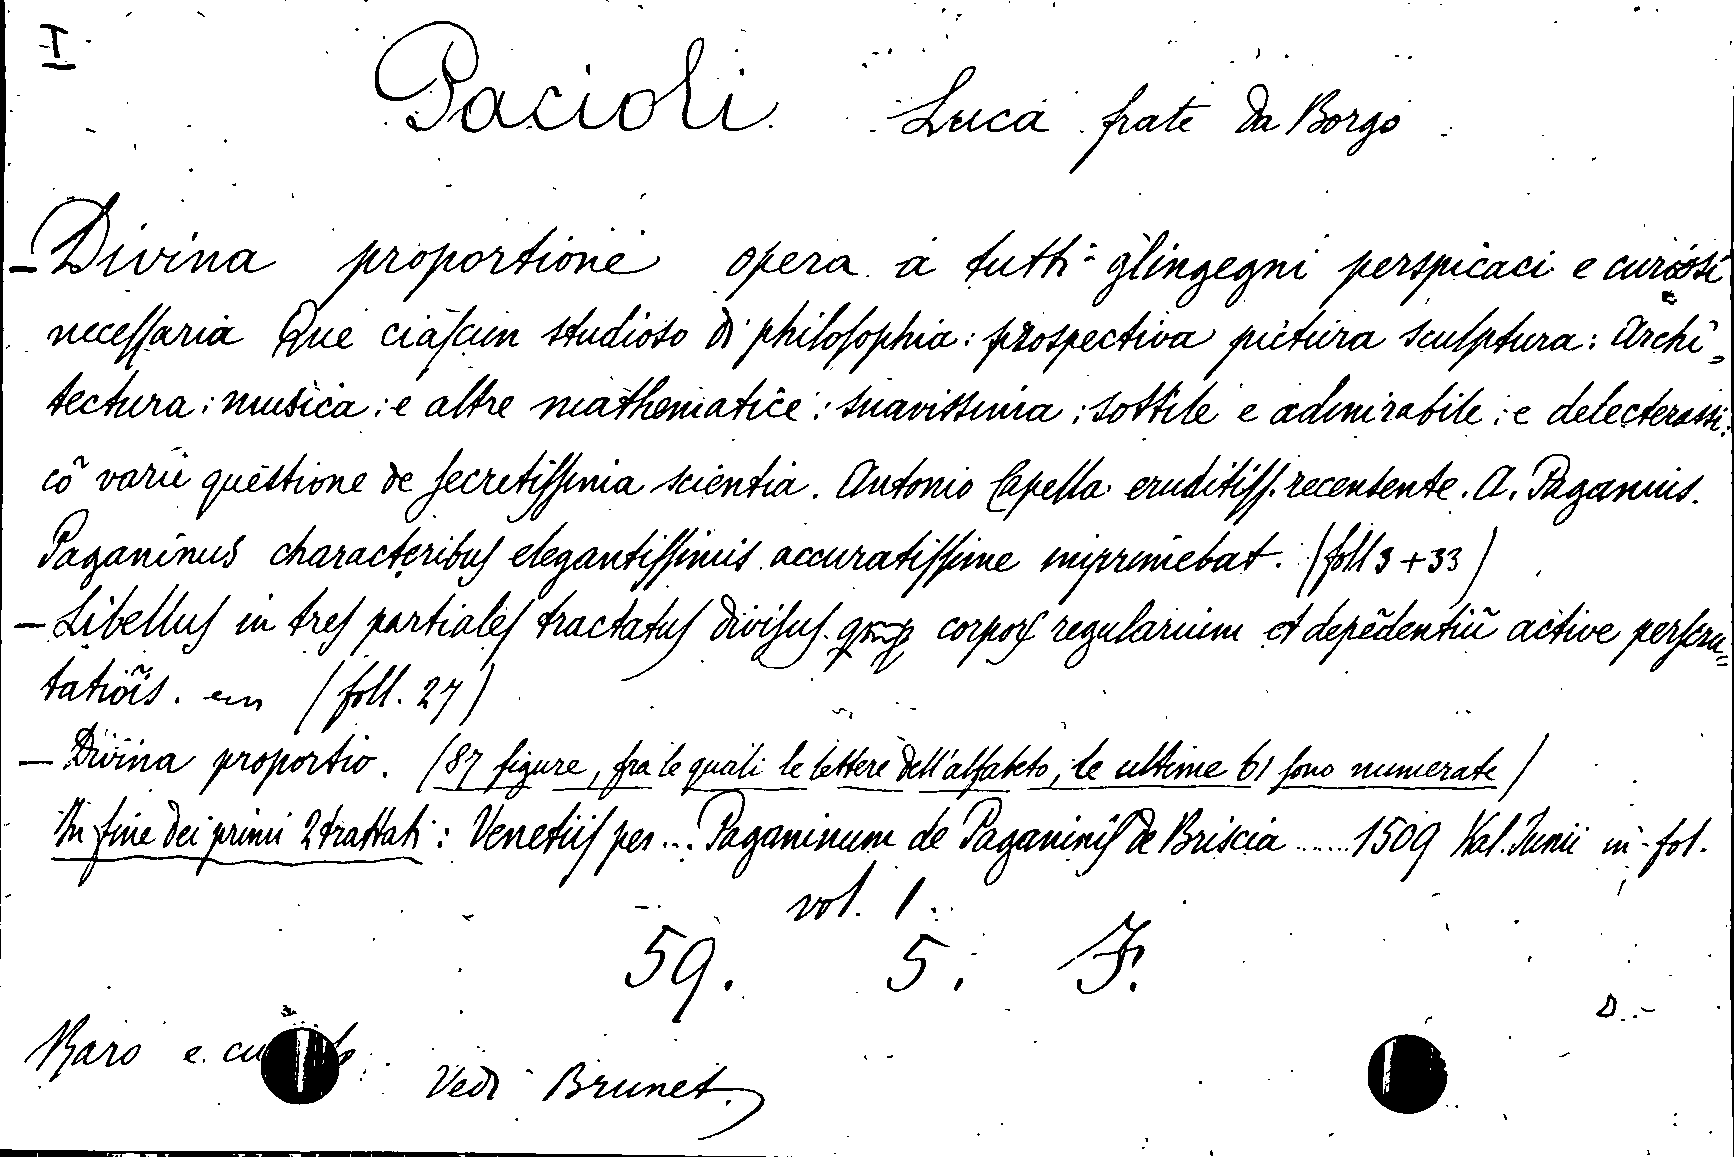 I
Pacioli Luca frate da Borgo
- Divina proportione opera a tutti glingegni perspicaci e curiosi
necessaria Que ciascun studioso di philosophia: prospectiva pictura sculptura: Archi=
tectura: musica: e altre mathematice: suavissima: sottile e admirabile: e delecterassi:
cō varie questione de secretissima scientia. Antonio Capella eruditiss. recensente. A. Paganius.
Paganinus characteribus elegantissimis accuratissime imprimebat. (foll 3+33)
- Libellus in tres partiales tractatus divisus corpor regularium et depēdentiū active perscru=
tatiōis. (foll. 27)
- Divina proportio. (87 figure, fra le quali le lettere dell'alfabeto, le ultime 61 sono numerate)
In fine dei primi 2 trattati: Venetiis per... Paganinum de Paganinis de Briscia ..... 1509 Kal. Junii in-fol.
vol. 1.
59. 5. F.
D.
Raro e
Vedi Brunet.